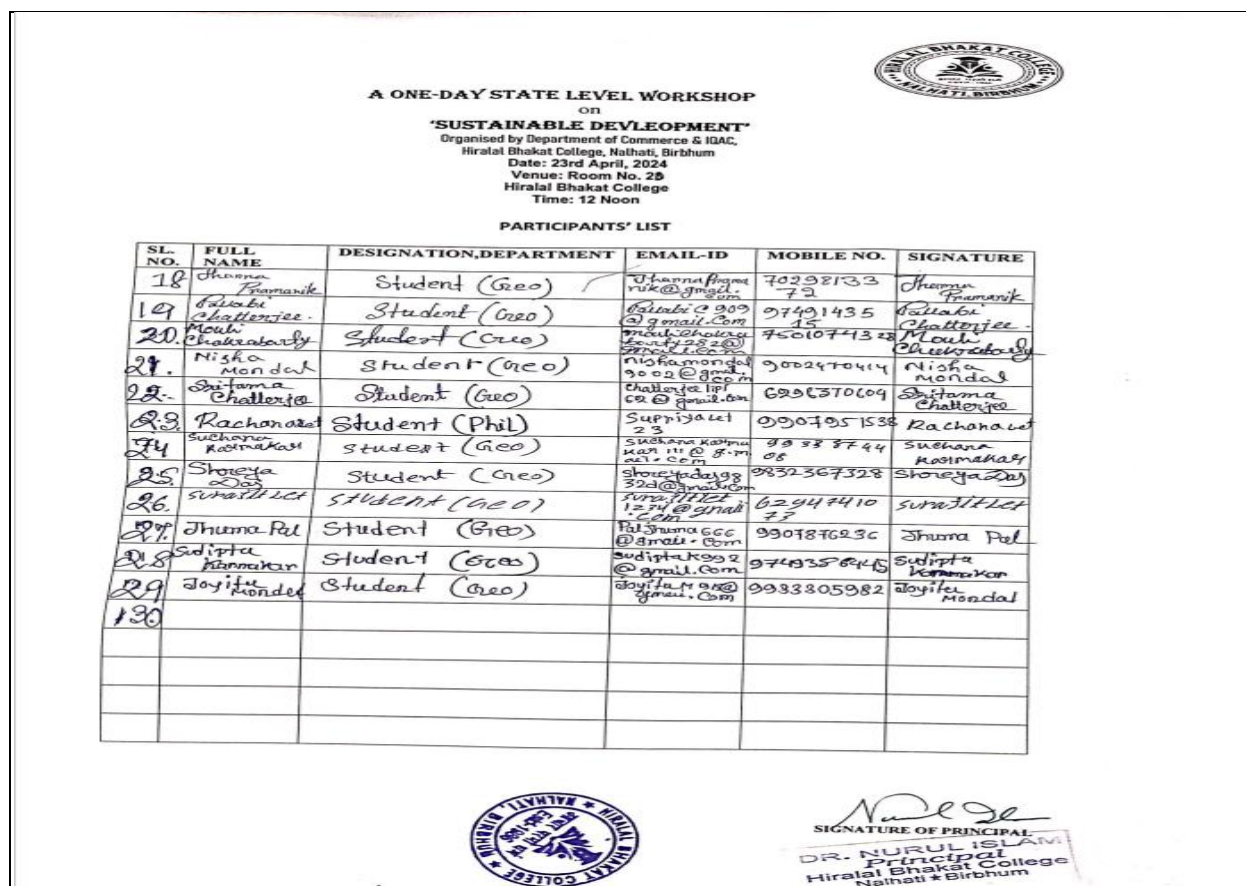 HIRALAL BHAKAT COLLEGE
NALHATI, BIRBHUM
A ONE-DAY STATE LEVEL WORKSHOP
on
'SUSTAINABLE DEVLEOPMENT'
Organised by Department of Commerce & IQAC,
Hiralal Bhakat College, Nalhati, Birbhum
Date: 23rd April, 2024
Venue: Room No. 25
Hiralal Bhakat College
Time: 12 Noon
PARTICIPANTS' LIST
SL. NO. FULL NAME DESIGNATION,DEPARTMENT EMAIL-ID MOBILE NO. SIGNATURE
18 Jharna Pramanik Student (Geo) 7029813372 Jharna Pramanik
19 Pallabi Chatterjee. Student (Geo) PallabiC909@gmail.Com 9749143515 Pallabi Chatterjee.
20. Mouli Chakrabarty Student (Geo) 7501074328 Mouli
21. Nisha Mondal Student (Geo) nishamondal9002@gmail.com 9002470414 Nisha Mondal
22. Sritama Chatterjee Student (Geo) 6296370609 Sritama Chatterjee
23. Rachana Let Student (Phil) Supriyalet23 9907951538 Rachana Let
24 Suchana Karmakar Student (Geo) 9938874408 Suchana Karmakar
25. Shreya Das Student (Geo) 9832367328 Shreya Das
26. Surajit Let Student (Geo) surajitlet1234@gmail.com 6294741073 Surajit Let
27. Jhuma Pal Student (Geo) PalJhuma666@gmail.com 9907876236 Jhuma Pal
28 Sudipta Karmakar Student (Geo) sudiptak992@gmail.Com Sudipta Karmakar
29 Joyita Mondal Student (Geo) 9933805982 Joyita Mondal
130
HIRALAL BHAKAT COLLEGE ★ NALHATI, BIRBHUM ★
SIGNATURE OF PRINCIPAL
DR. NURUL ISLAM
Principal
Hiralal Bhakat College
Nalhati ★ Birbhum